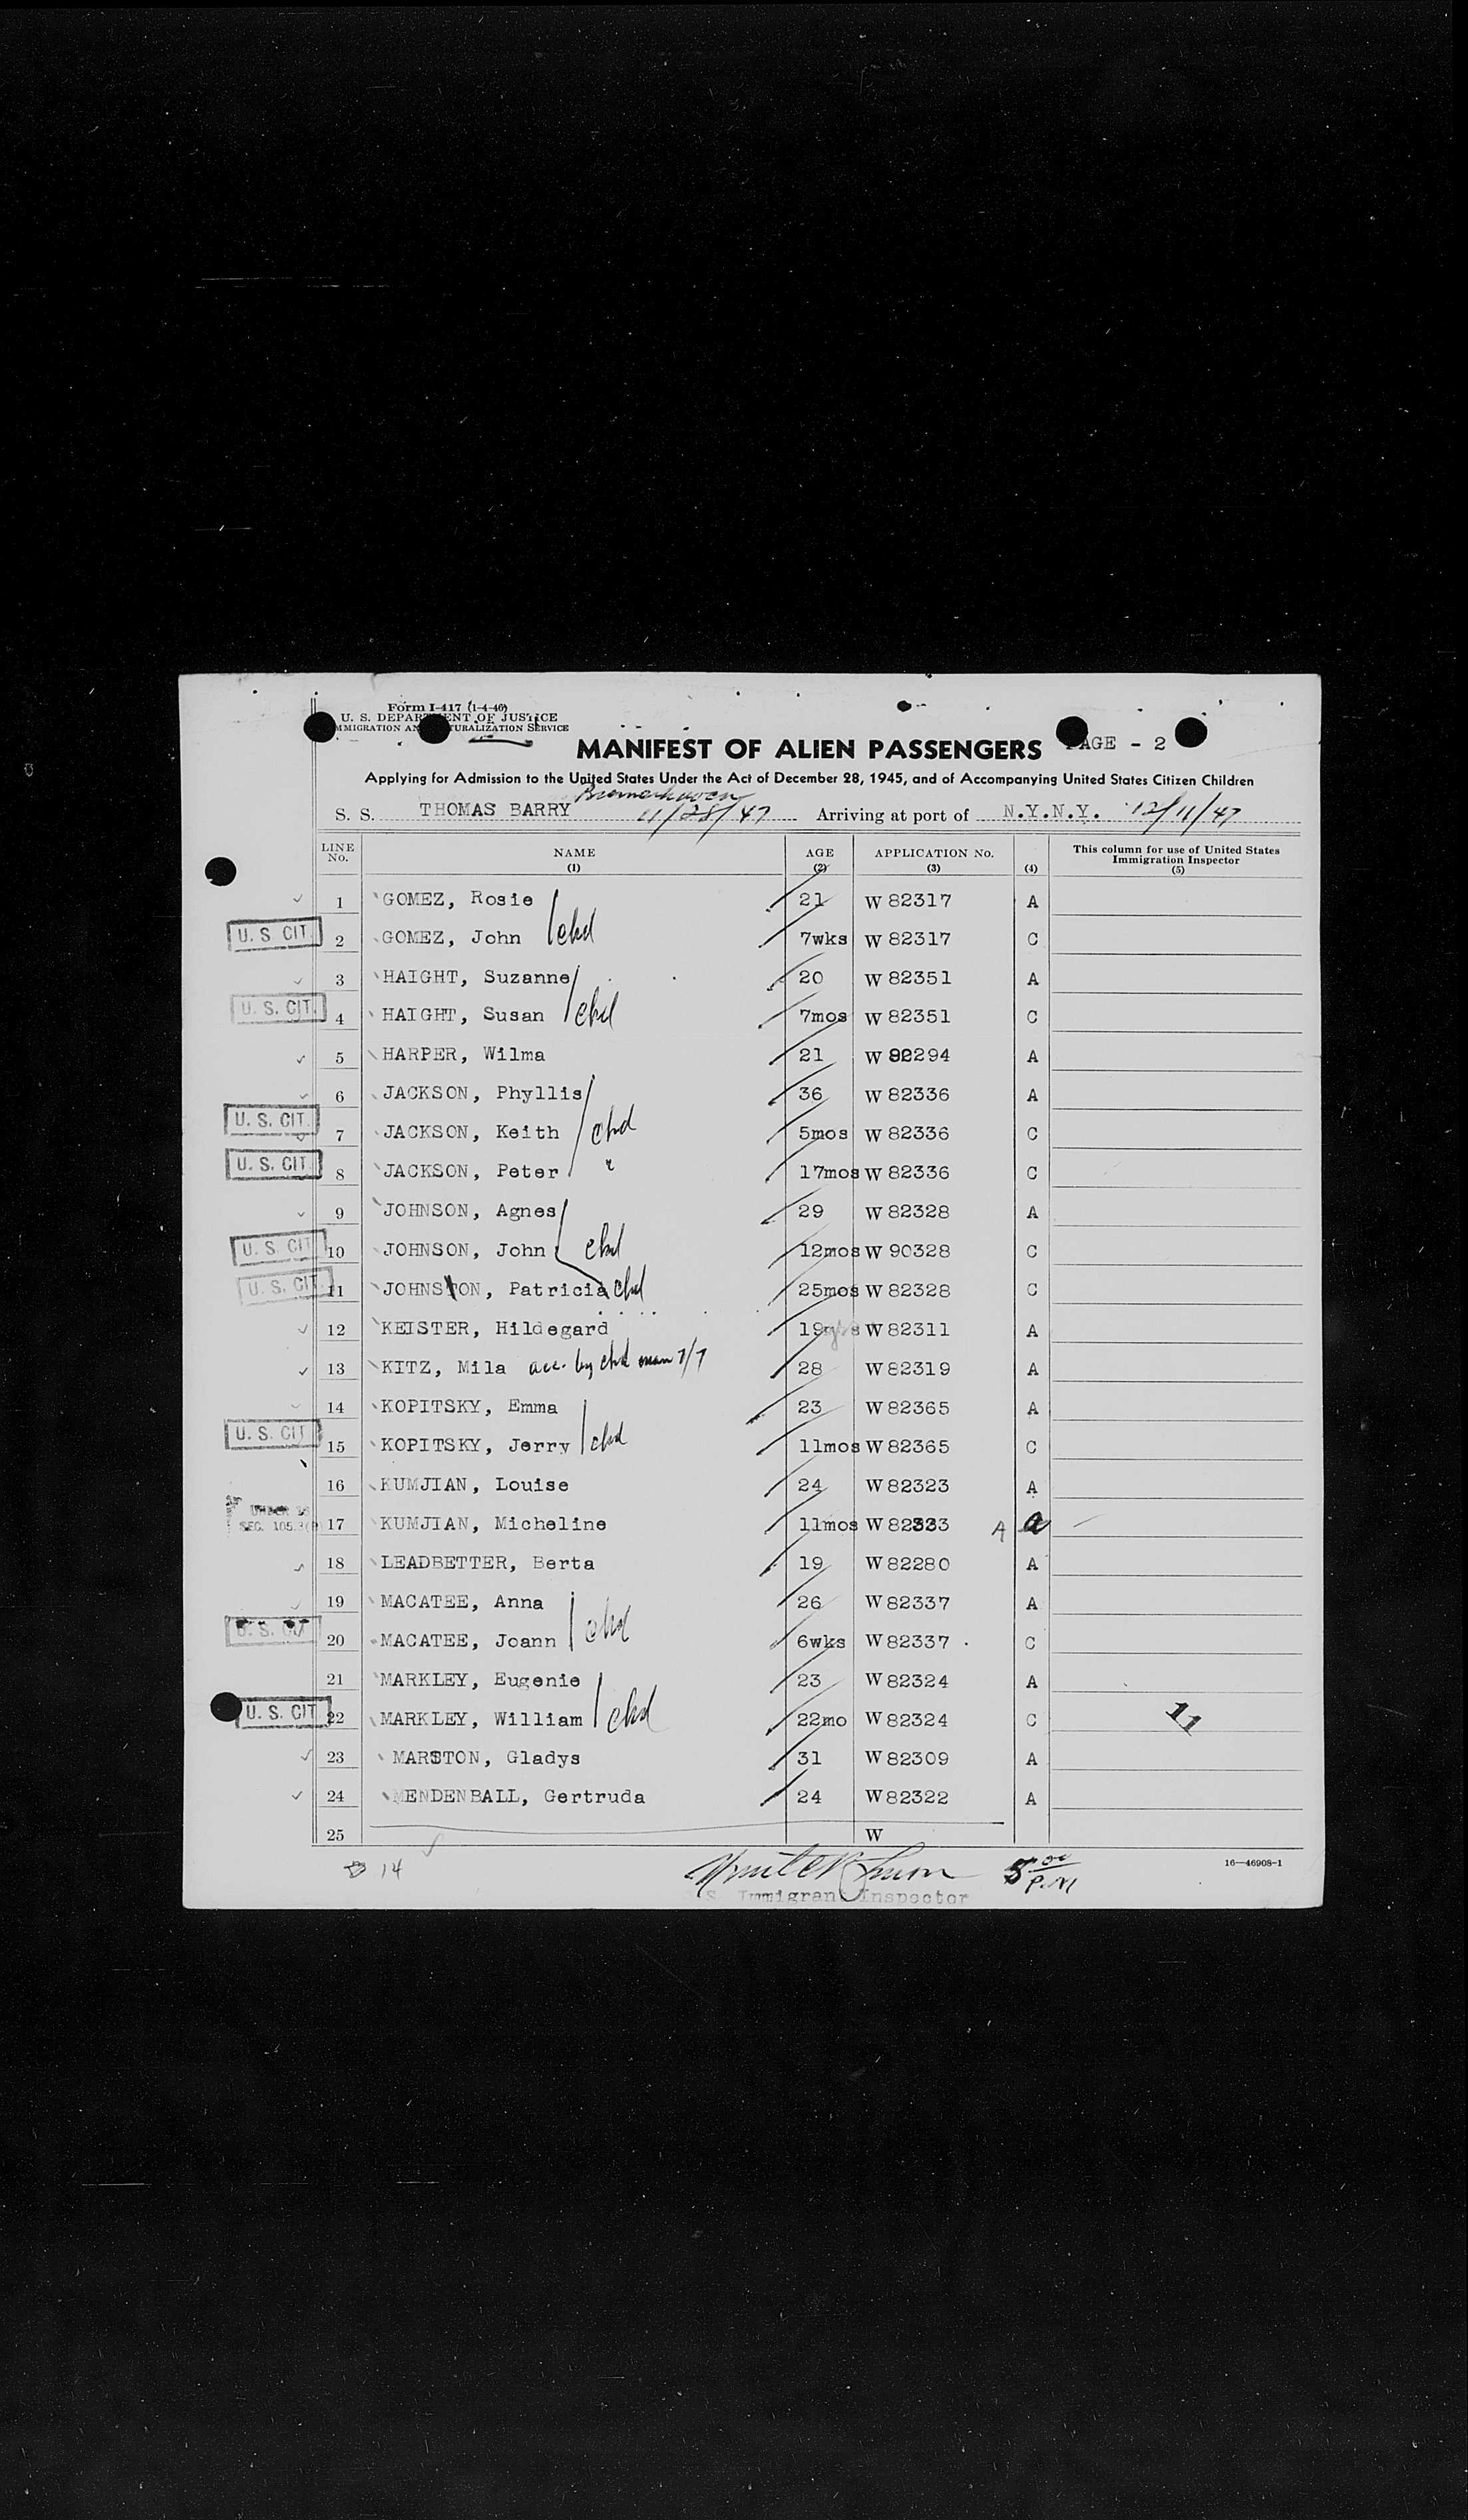 Form I-417 (1-4-46)
U. S. DEPARTMENT OF JUSTICE
IMMIGRATION AND NATURALIZATION SERVICE
MANIFEST OF ALIEN PASSENGERS PAGE - 2
Applying for Admission to the United States Under the Act of December 28, 1945, and of Accompanying United States Citizen Children
Bremerhaven
S. S. THOMAS BARRY 11/28/47 Arriving at port of N.Y.N.Y. 12/11/47
LINE No. NAME (1) AGE (2) APPLICATION No. (3) (4) This column for use of United States Immigration Inspector (5)
1 GOMEZ, Rosie 21 W 82317 A
U. S. CIT. 2 GOMEZ, John chd 7wks W 82317 C
3 HAIGHT, Suzanne 20 W 82351 A
U. S. CIT. 4 HAIGHT, Susan chd 7mos W 82351 C
5 HARPER, Wilma 21 W 82294 A
6 JACKSON, Phyllis 36 W 82336 A
U. S. CIT. 7 JACKSON, Keith chd 5mos W 82336 C
U. S. CIT. 8 JACKSON, Peter " 17mos W 82336 C
9 JOHNSON, Agnes 29 W 82328 A
U. S. CIT 10 JOHNSON, John chd 12mos W 90328 C
U. S. CIT. 11 JOHNSTON, Patricia chd 25mos W 82328 C
12 KEISTER, Hildegard 19 W 82311 A
13 KITZ, Mila acc. by chd 7/7 28 W 82319 A
14 KOPITSKY, Emma 23 W 82365 A
U. S. CIT 15 KOPITSKY, Jerry chd 11mos W 82365 C
16 KUMJIAN, Louise 24 W 82323 A
UNDER SEC. 105.3 17 KUMJIAN, Micheline 11mos W 82323 A a
18 LEADBETTER, Berta 19 W 82280 A
19 MACATEE, Anna 26 W 82337 A
U. S. CIT 20 MACATEE, Joann chd 6wks W 82337 C
21 MARKLEY, Eugenie 23 W 82324 A
U. S. CIT 22 MARKLEY, William chd 22mo W 82324 C 11
23 MARSTON, Gladys 31 W 82309 A
24 MENDENBALL, Gertruda 24 W 82322 A
25 W
14 5 00 P.M 16—46908-1
S Immigrant Inspector